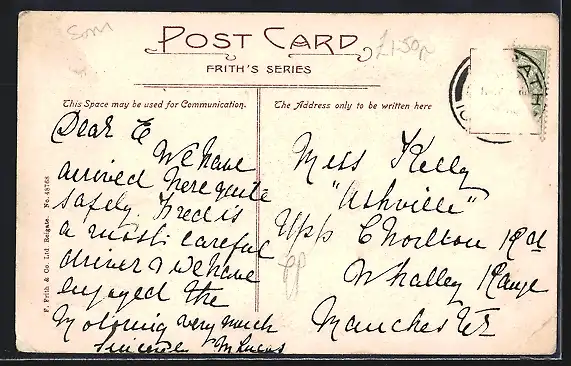 Som
POST CARD
£1.50p
FRITH'S SERIES
This Space may be used for Communication.
The Address only to be written here
BATH
Dear E
We have
arrived here quite
safely. Fred is
a most careful
driver & we have
enjoyed the
Motoring very much
Sincerely M Lucas
Miss Kelly
"Ashville"
Upp Chorlton Rd
Whalley Range
Manchester
F. Frith & Co. Ltd. Reigate. No. 48768